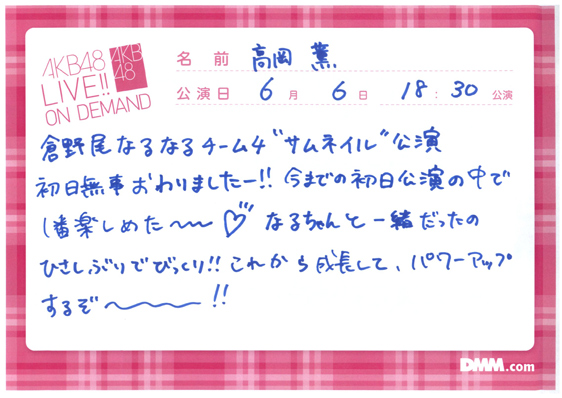 AKB48
LIVE!!
ON DEMAND
AKB
48
名前 高岡 薫
公演日 6月 6日 18:30 公演
倉野尾なるなるチーム4"サムネイル"公演
初日無事おわりましたー!! 今までの初日公演の中で
1番楽しめた〜〜♡" なるちゃんと一緒だったの
ひさしぶりでびっくり!! これから成長して、パワーアップ
するぞ〜〜〜!!
DMM.com